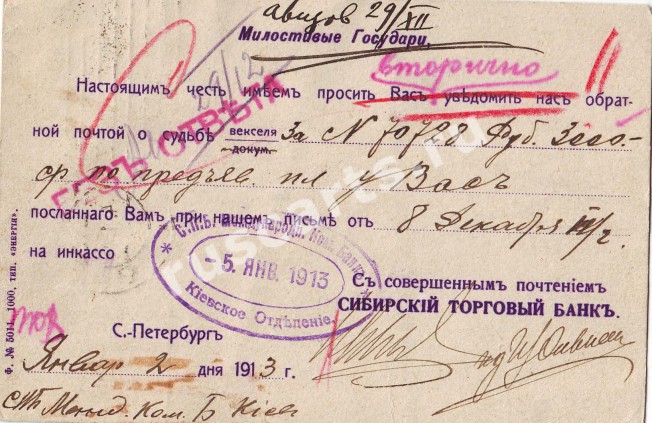 авизов 29/XII
Милостивые Государи,
29/12
вторично
Настоящимъ честь имѣемъ просить Васъ увѣдомить насъ обрат-
ной почтой о судьбѣ векселя докум. За N 70728 Руб. 3000.-
ср. по предъяв. пл у Васъ
БЕЗЪ ОТВѢТА
посланнаго Вамъ при нашемъ письмѣ отъ 8 Декабря п/г
на инкассо
С.П.Б. Международн. Ком. Банкъ
5 ЯНВ. 1913
Кіевское Отдѣленіе
Съ совершеннымъ почтеніемъ
СИБИРСКІЙ ТОРГОВЫЙ БАНКЪ.
С.-Петербургъ
Январ 2 дня 1913 г.
Ком. Б Кіев
Ф. № 5011. 1000, тип. «ЭНЕРГІЯ».
russcarts.ru